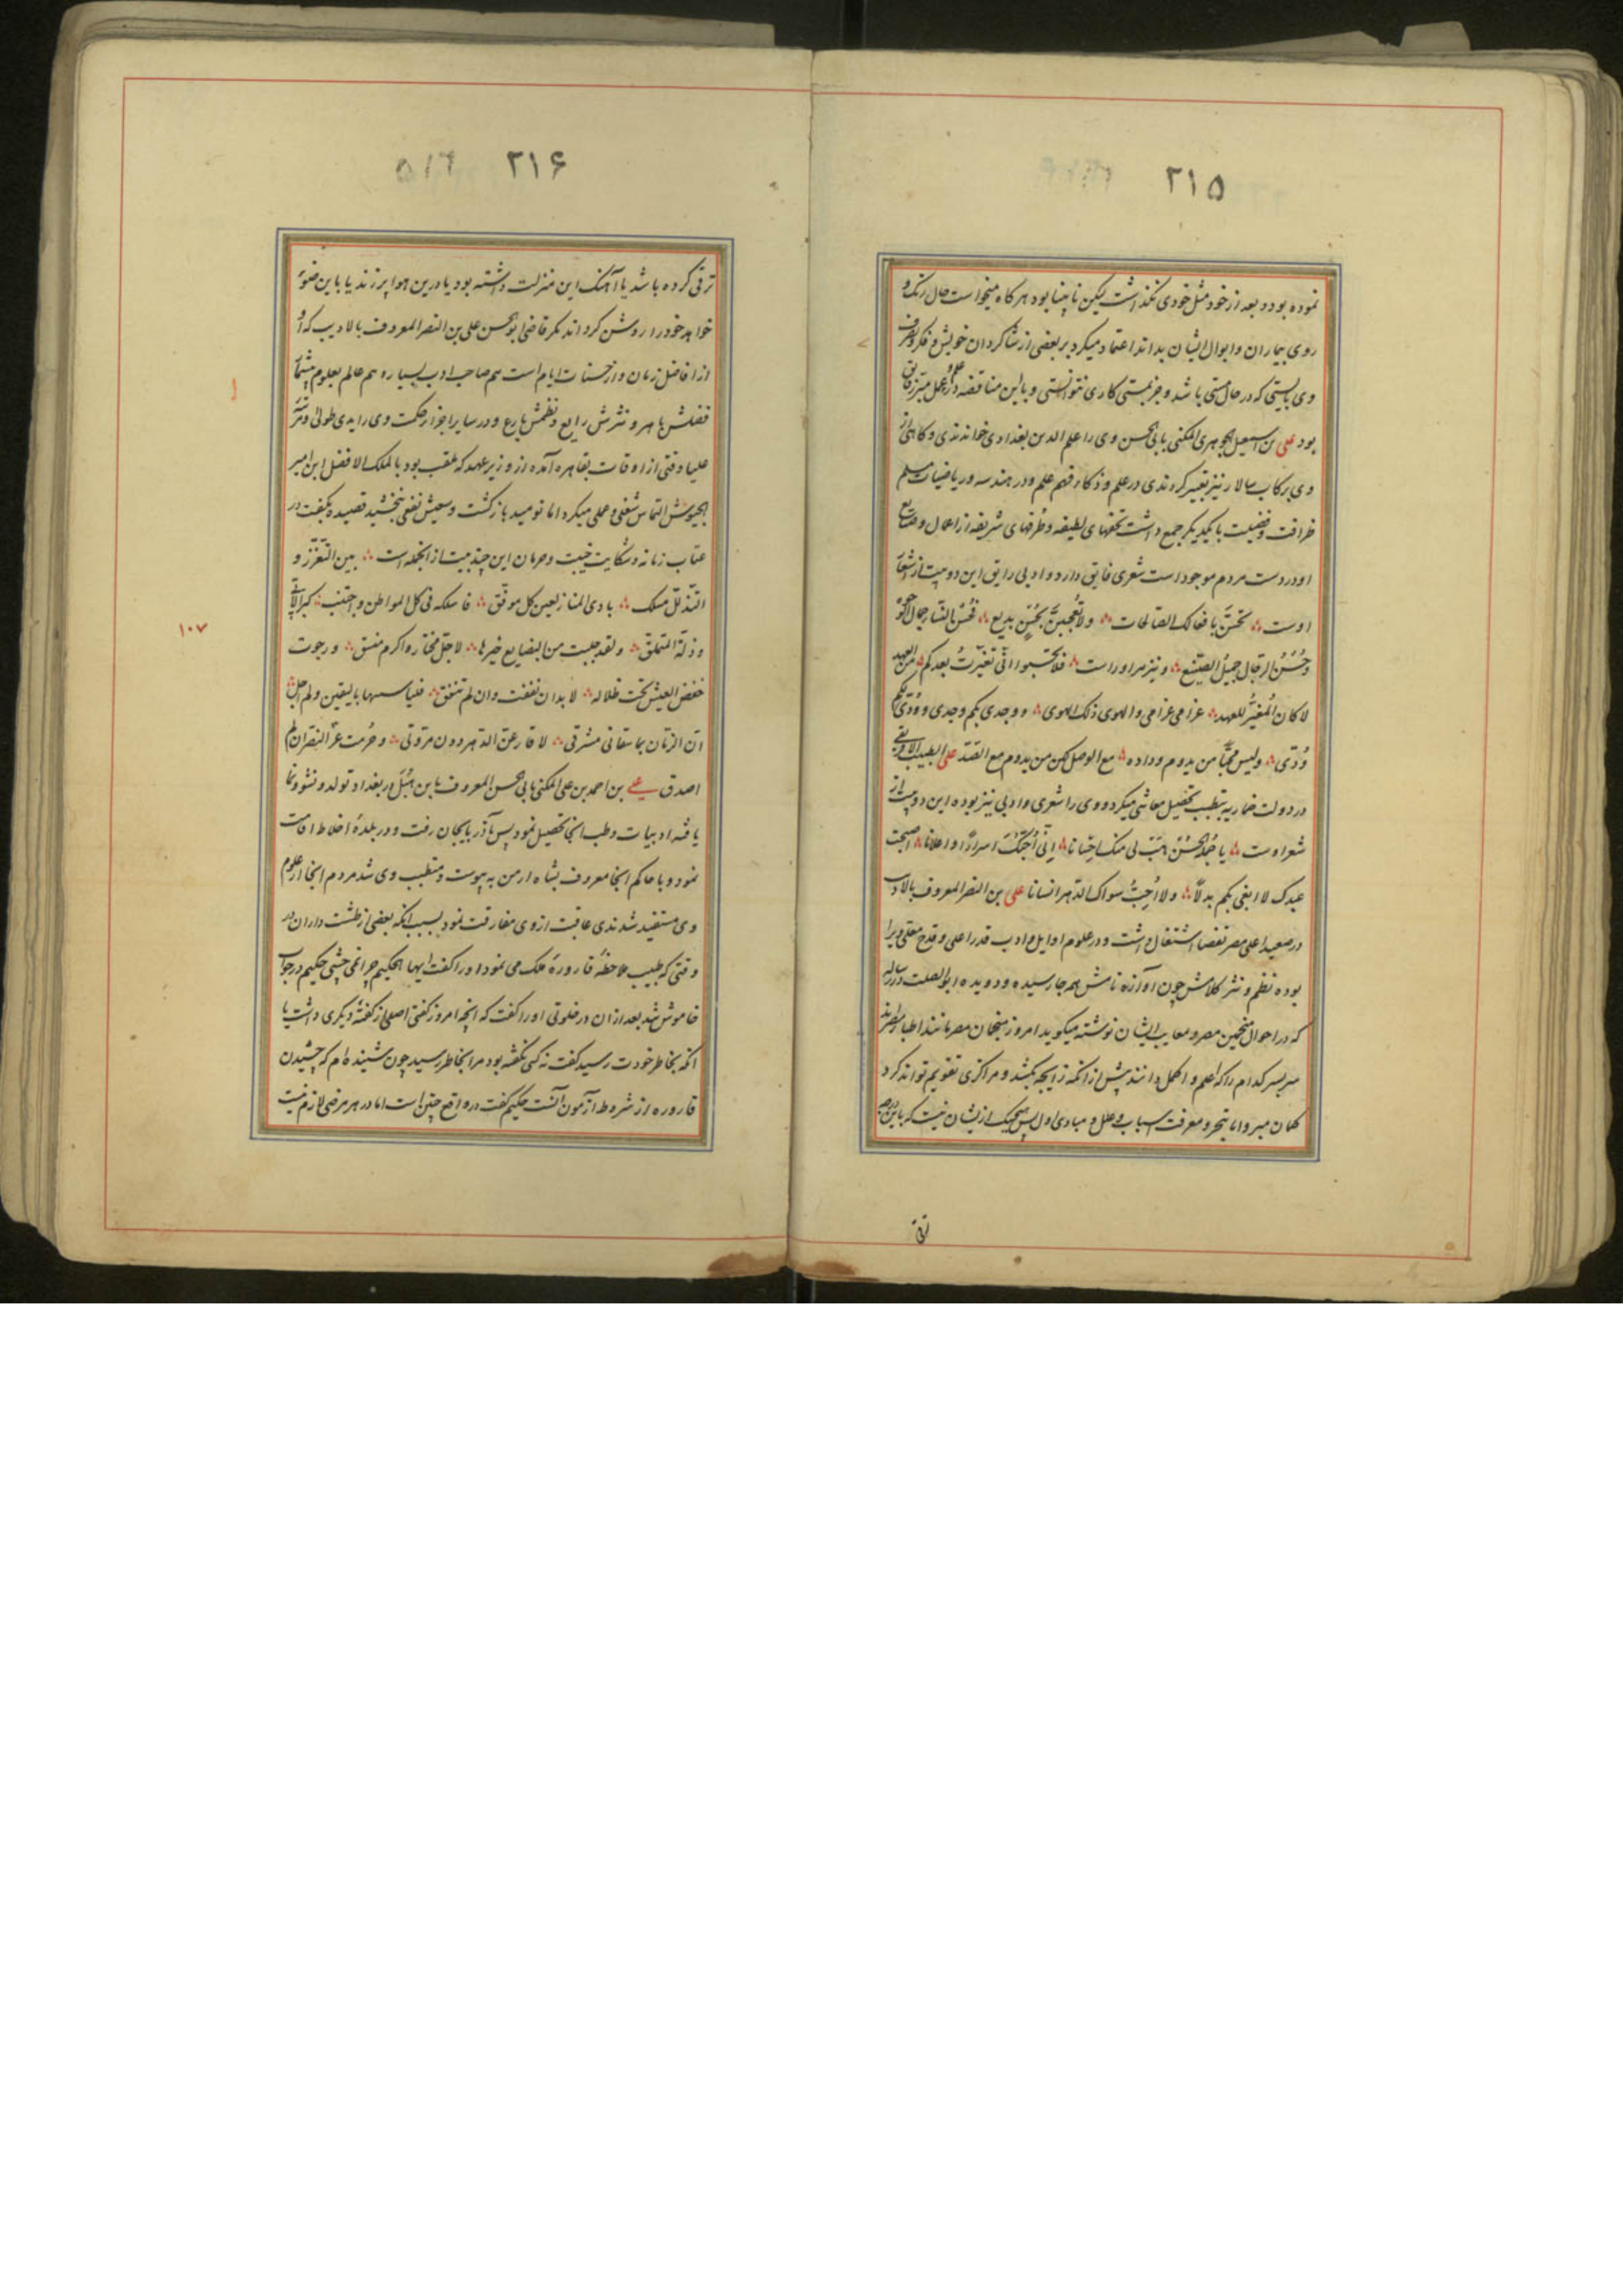 ۲۱۵
نموده بود و بعد از خود مثل خودی نگذاشت لیکن نابینا بود هرکاه میخواست حال رنگ و
روی بیماران و ابوال ایشان بداند اعتماد میکرد بر بعضی از شاکردان خویش و
وی بایستی که در حال مستی باشد و جز بمستی کاری نتوانستی و با این مناقضه در علم و عمل
بود علی بن اسمعیل الجوهری المکنی بابی الحسن وی را علم الدین بغدادی خواندندی و کاهی از
وی برکاب سالار نیز تعبیر کردندی در علم و ذکاء و فهم علم و در هندسه و ریاضیات مسلم
ظرافت و فضیلت با یکدیگر جمع داشت تحفهای لطیفه و طُرفهای شریفه از اعمال و صنایع
او در دست مردم موجود است شعری فایق دارد و ادبی رایق این دو بیت از اشعار
اوست تحسّن بافعالک الصالحات ولا تُعجبنّ بحُسنٍ بدیع فحُسن النساء جمال الوجوه
وحُسنُ الرجال جمیلُ الصنیع و نیز مر او راست فلا تحسبوا انّی تغیّرتُ بعدکم من العهد
لا کان المُغیّرُ للعهد غرامی غرامی و الهوی ذلک الهوی و وجدی بکم وجدی و وُدّی بکم
وُدّی ولیس محبًّا من یدوم وداده مع الوصل لکن من یدوم مع الصّد علی الطبیب الافریقی
در دولت ضاریه بتطبب تحصیل معاشی میکرد و وی را شعری و ادبی نیز بوده این دو بیت از
شعر اوست یا هَب لی منک احسانا اِنّی اُحبّک اسرارًا و اعلانا اصبحت
عبدک لا ابغی بکم بدلًا ولا اُحِبُّ سواک الدهر انسانا علی بن النصر المعروف بالادیب
در صعید اعلی مصر بقضا اشتغال داشت و در علوم اوایل و ادب قدر اعلی و قدح معلّی ویرا
بوده نظم و نثر کلامش چون آوازه نامش همه جا رسیده و دویده ابو الصلت در رساله
که در احوال منجمین مصر و معایب ایشان نوشته میکوید امروز منجمان مصر مانند اطبا
سربسر کدام را که اعلم و اکمل دانند پیش از آنکه زایجه بکشد و مراکزی تقویم تواند کرد
کمان میرو اما تبحر و معرفت اسباب و علل و مبادی اول پس هیچیک از ایشان نیست که باین
ترقی
۲۱۶ ۵۱۶
ترقی کرده باشد یا آهنک این منزلت داشته بود یا درین هوا پر زند یا باین ضوء
خواهد خود را روشن کرداند مکر قاضی ابوالحسن علی بن النصر المعروف بالادیب که او
از افاضل زمان و از حسنات ایام است هم صاحب ادب بسیار و هم عالم بعلوم بیشمار
فضلش باهر و نثرش رایع و نظمش بارع و در سایر اجزاء حکمت وی را یدی طولی و
علیا وقتی از اوقات بقاهره آمده از وزیر عهد که ملقب بود بالملک الافضل ابن امیر
الجیوش التماس شغلی و عملی میکرد اما نومید بازکشت و سعیش نفعی نبخشید قصیده بکفت در
عتاب زمانه و شکایت خیبت و حرمان این چند بیت از انجمله است بین التعزز و
التذلل مسلک بادی المنار لعین کل موفق فاسلکه فی کل المواطن واجتنب کبر الابی
وذلة المتملق ولقد جلبت من البضایع خیرها لاجلّ مختار واکرم منفق ورجوت
خفض العیش تحت ظلاله لا بد ان نفقت وان لم تنفق ولم
انّ الزمان بما سقانی مشرقی لا قارعنّ الدهر دون مروتی وحُرمت عزّ النصر ان لم
اصدق علی بن احمد بن علی المکنی بابی الحسن المعروف بابن هُبَل در بغداد تولد و نشو و نما
یافته ادبیات و طب آنجا تحصیل نمود پس بآذربایجان رفت و در بلدهٔ اخلاط اقامت
نمود و با حاکم آنجا معروف بشاه ارمن به پیوست و متطبب وی شد مردم آنجا از علوم
وی مستفید شدندی عاقبت از وی مفارقت نمود بسبب آنکه بعضی از طشت داران در
وقتی که طبیب ملاحظهٔ قارورهٔ ملک می نمود او را کفت ایها الحکیم چرا نمی چشی حکیم در جواب
خاموش شد بعد از ان در خلوتی او را کفت که آنچه امروز کفتی اصلی از کفتهٔ دیکری داشت یا
آنکه بخاطر خودت رسید کفت نه کسی نکفته بود مرا بخاطر رسید چون شنیده ام که چشیدن
قاروره از شروط آزمون آنست حکیم کفت در واقع چنین است اما در هر مرضی لازم نیست
۱۰۷